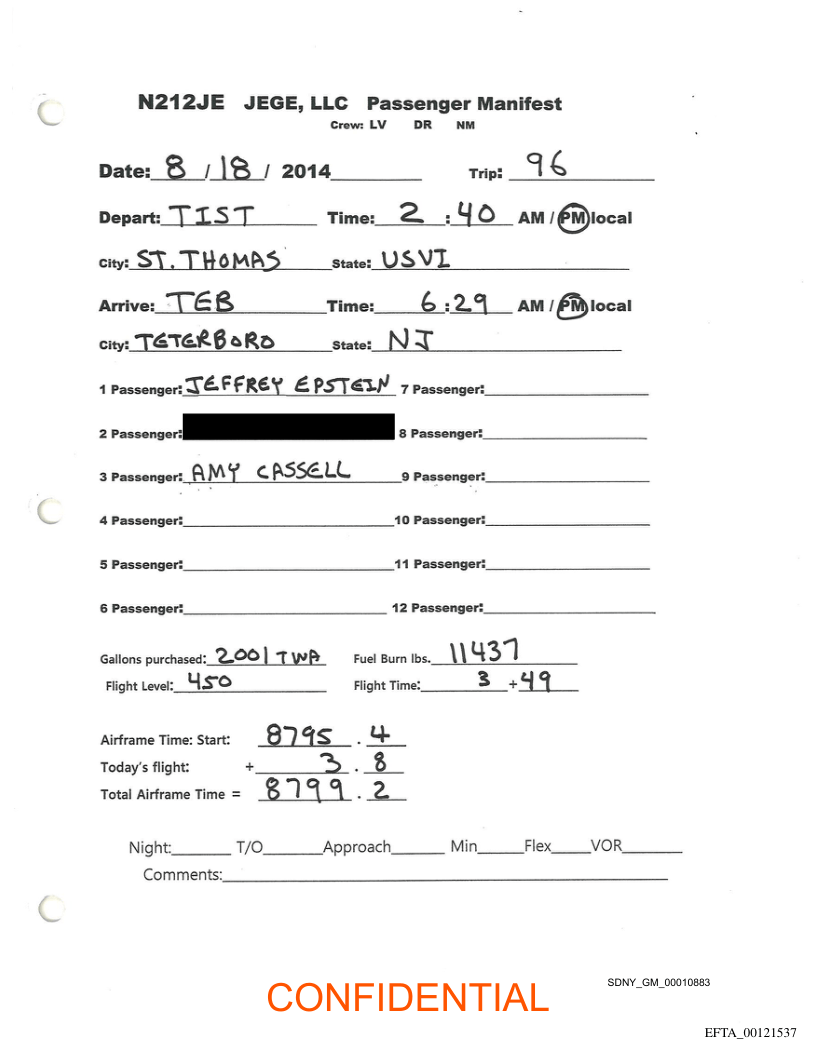 N212JE JEGE, LLC Passenger Manifest
Crew: LV DR NM
Date: 8 / 18 / 2014 Trip: 96
Depart: TIST Time: 2 : 40 AM / PM local
City: ST. THOMAS State: USVI
Arrive: TEB Time: 6 : 29 AM / PM local
City: TETERBORO State: NJ
1 Passenger: JEFFREY EPSTEIN 7 Passenger:
2 Passenger: 8 Passenger:
3 Passenger: AMY CASSELL 9 Passenger:
4 Passenger: 10 Passenger:
5 Passenger: 11 Passenger:
6 Passenger: 12 Passenger:
Gallons purchased: 2001 TWA Fuel Burn lbs. 11437
Flight Level: 450 Flight Time: 3 + 49
Airframe Time: Start: 8795 . 4
Today's flight: + 3 . 8
Total Airframe Time = 8799 . 2
Night: T/O Approach Min Flex VOR
Comments:
SDNY_GM_00010883
CONFIDENTIAL
EFTA_00121537